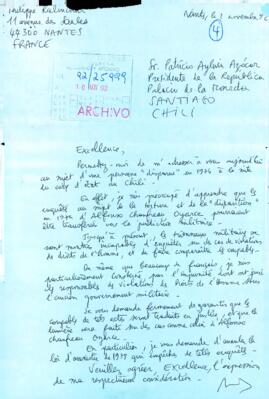 Philippe
11 avenue des
44300 NANTES
FRANCE
Nantes, le 1 novembre
4
92/25999
ARCHIVO
Sr. Patricio Aylwin Azócar
Presidente de la República
Palacio de la Moneda
SANTIAGO
CHILI
Excellence,
Permettez-moi de m'adresser à vous aujourd'hui
au sujet d'une personne "disparue" en 1974 à la suite
du coup d'état au Chili.
En effet, je viens d'apprendre que les
enquêtes au sujet de la torture et de la "disparition"
en 1974 d'Alfonso Chanfreau Oyarce pourraient
être transférées vers la juridiction militaire.
Jusqu'à présent, les tribunaux militaires se
sont montrés incapables d'enquêter sur des cas de violations
de droits de l'homme, et de faire comparaître les coupables.
De même que beaucoup de français, je suis
particulièrement par l'impunité dont ont joui
les responsables de violations de Droits de l'Homme sous
l'ancien gouvernement militaire.
Je vous demande fermement de garantir que les
coupables de tels actes seront traduits en justice, et que la
lumière sera faite sur des cas comme celui d'Alfonso
Chanfreau Oyarce.
En particulier, je vous demande d'annuler la
loi d'amnistie de 1978 qui empêche de telles enquêtes.
Veuillez agréer, Excellence, l'expression
de ma respectueuse considération.